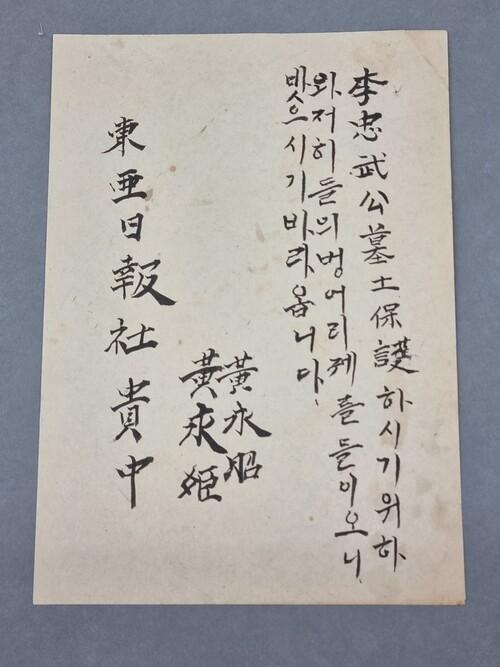 李忠武公墓土保護하시기위하
와저히들의벙어리제를들이오니
밧으시기바라옴니다
黃永昭
黃永姬
東亜日報社貴中